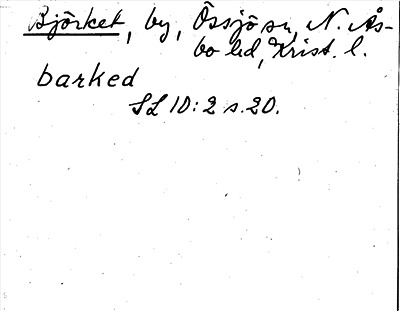 Björket, by, Össjö sn, N. Ås-
bo hd, Krist. l.
barked
SL 10:2 s. 20.